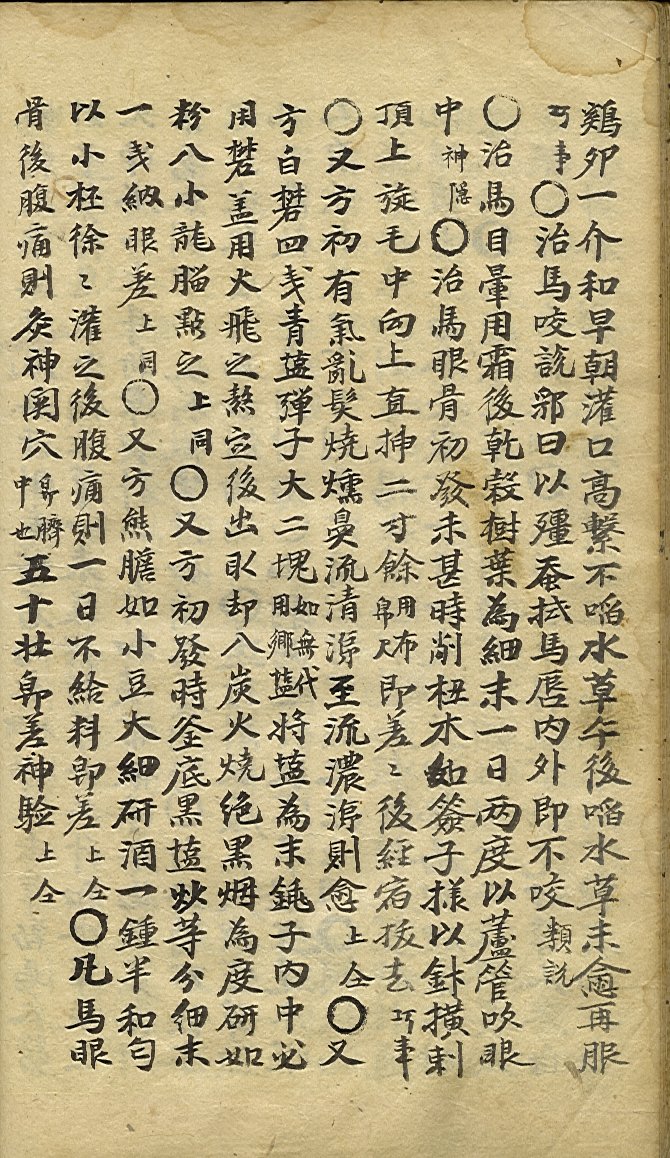 鷄卵一介和早朝灌口高繫不啗水草午後啗水草未愈再服
巧事○治馬咬說郛曰以殭蚕拭馬唇內外即不咬類說
○治馬目暈用霜後乾穀樹葉為細末一日两度以蘆管吹眼
中神隱○治馬眼骨初發未甚時削杻木如簽子㨾以針橫刺
頂上旋毛中向上直揷二寸餘用布帛尺即差〻後経宿拔去巧事
○又方初有氣亂髮燒燻鼻流清涕至流濃涕則愈上仝○又
方白礬四戔青塩彈子大二塊如無代用鄕塩將塩為末銚子內中必
用礬盖用火飛之熬定後出取却八炭火燒绝黑烟為度研如
粉八小龍腦點之上同○又方初發時釜底黑塩炒等分細末
一戔納眼差上同○又方熊膽如小豆大細研酒一鍾半和勻
以小柸徐〻灌之後腹痛則一日不給料即差上仝○凡馬眼
骨後腹痛則灸神闕穴鼻臍中也五十壮即差神验上仝